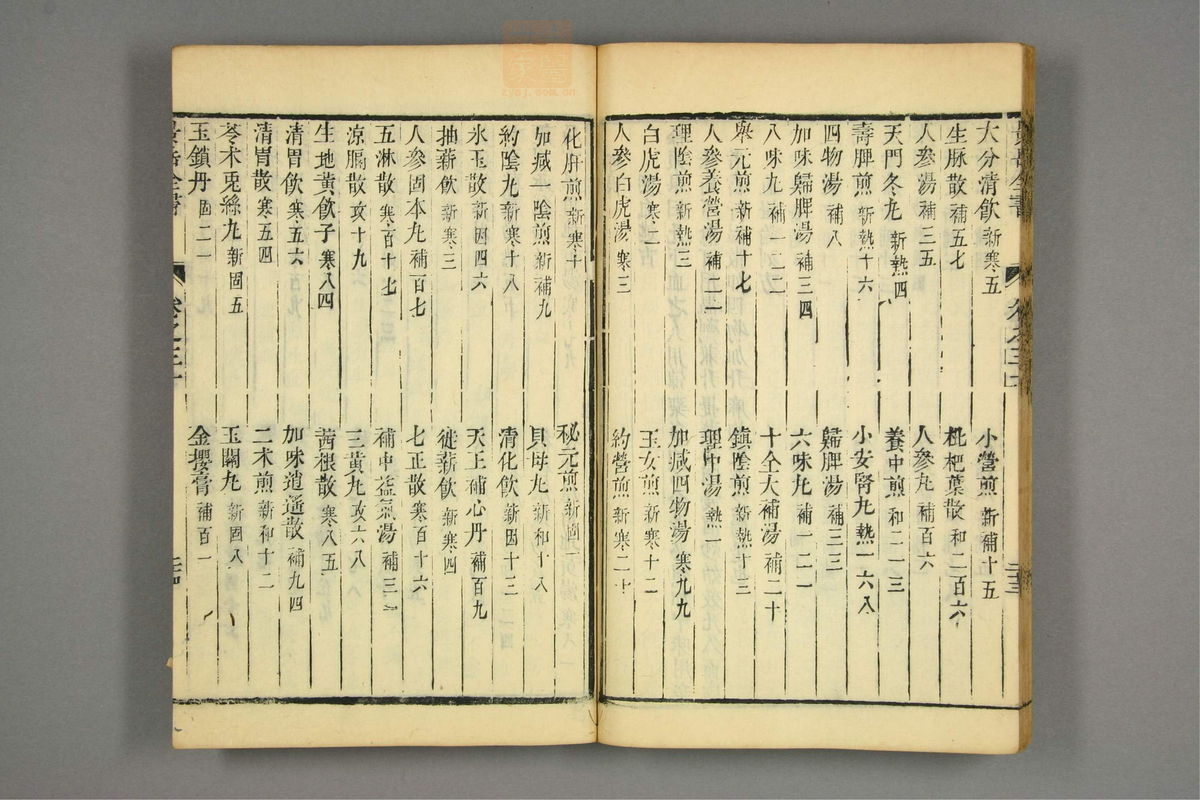 景岳全書 卷之三十 二十三
大分清飲新寒五 小營煎新補十五
生脉散補五七 枇杷葉散和二百六
人參湯補三五 人參丸補百六
天門冬丸新熱四 養中煎和二一三
壽脾煎新熱十六 小安腎丸熱一六八
四物湯補八 歸脾湯補三三
加味歸脾湯補三四 六味丸補一二一
八味丸補一二二 十全大補湯補二十
舉元煎新補十七 鎮陰煎新熱十三
人參養營湯補二二 理中湯熱一
理陰煎新熱三 加減四物湯寒九九
白虎湯寒二 玉女煎新寒十二
人參白虎湯寒三 約營煎新寒二十
化肝煎新寒十 秘元煎新固一
加減一陰煎新補九 貝母丸新和十八
約陰丸新寒十八 清化飲新因十三
氷玉散新因四六 天王補心丹補百九
抽薪飲新寒三 徙薪飲新寒四
人參固本丸補百七 七正散寒百十六
五淋散寒百十七 補中益氣湯補三一
凉膈散攻十九 三黃丸攻六八
生地黃飲子寒八四 茜根散寒八五
清胃飲寒五六 加味逍遙散補九四
清胃散寒五四 二朮煎新和十二
苓朮兎絲丸新固五 玉關丸新固八
玉鎖丹固二一 金櫻膏補百一
景岳全書 卷之三十